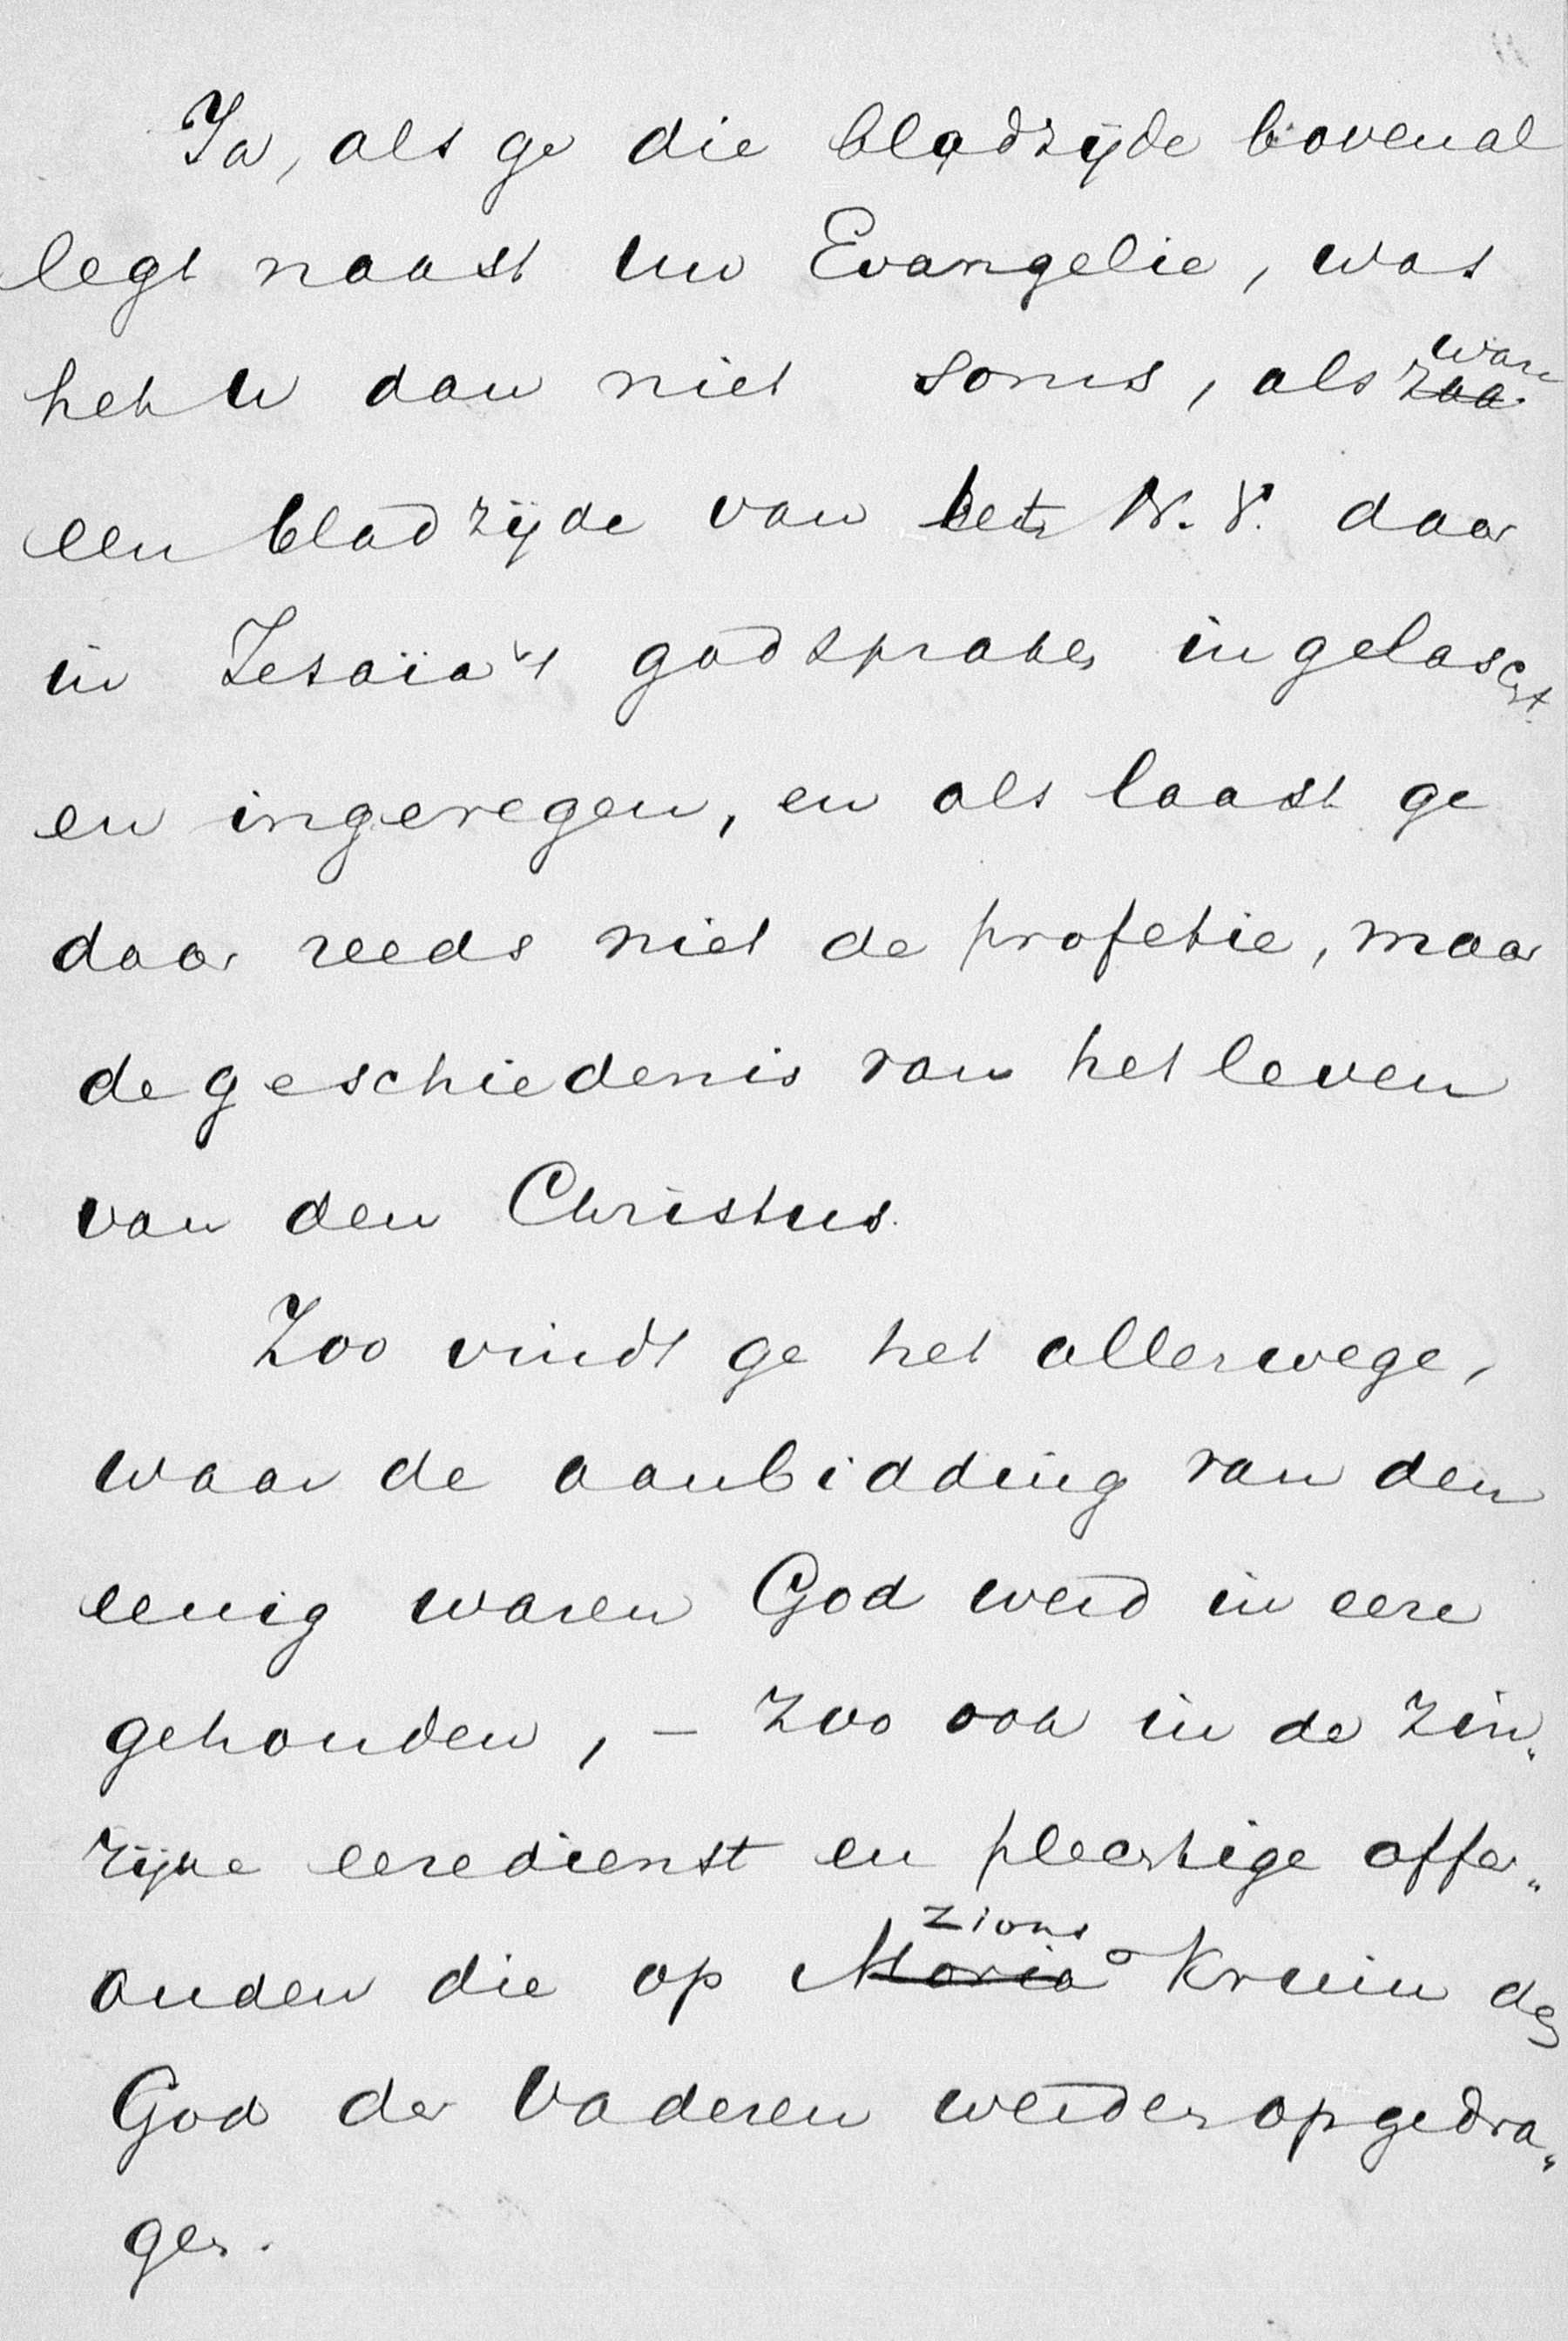 Ja, als ge die bladzijde bovenal
legt naast uw Evangelie, was
het u dan niet soms, als ware
een bladzijde van het N. V. daar
in Jesaïa's godspraken ingelascht
en ingeregen, en als laast ge
daar reeds niet de profetie, maar
de geschiedenis van het leven
van den Christus.
Zoo vindt ge het allerwege,
waar de aanbidding van den
eenig waren God werd in eere
gehouden, – zoo ook in de zin„
rijke eeredienst en plechtige offer„
anden die op Zions Kruin den
God der Vaderen werden opgedra„
gen.